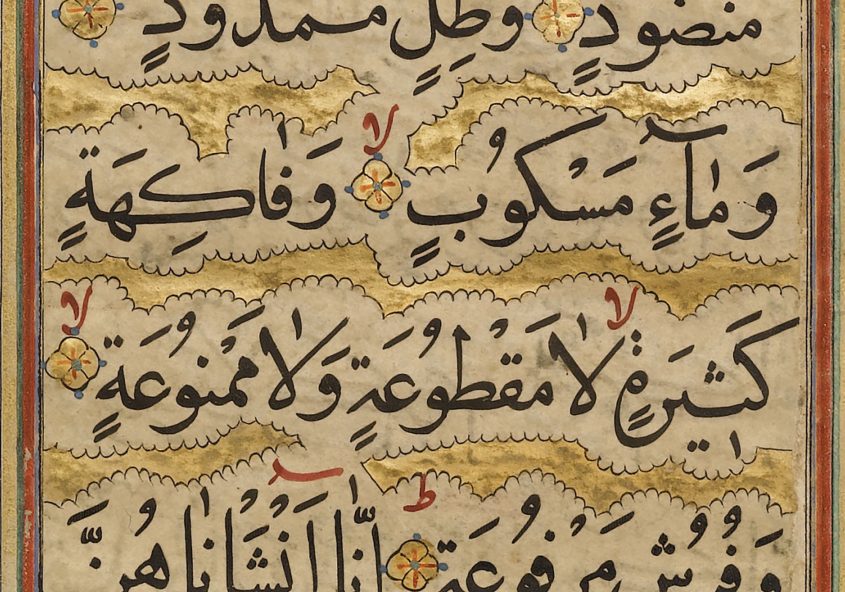 مَنْضُودٍ وَظِلٍّ مَمْدُودٍ
وَمَآءٍ مَسْكُوبٍ لا وَفَاكِهَةٍ
كَثِيرَةٍ لا لَا مَقْطُوعَةٍ وَلَا مَمْنُوعَةٍ لا
وَفُرُشٍ مَرْفُوعَةٍ ط اِنَّآ اَنْشَاْنَاهُنَّ